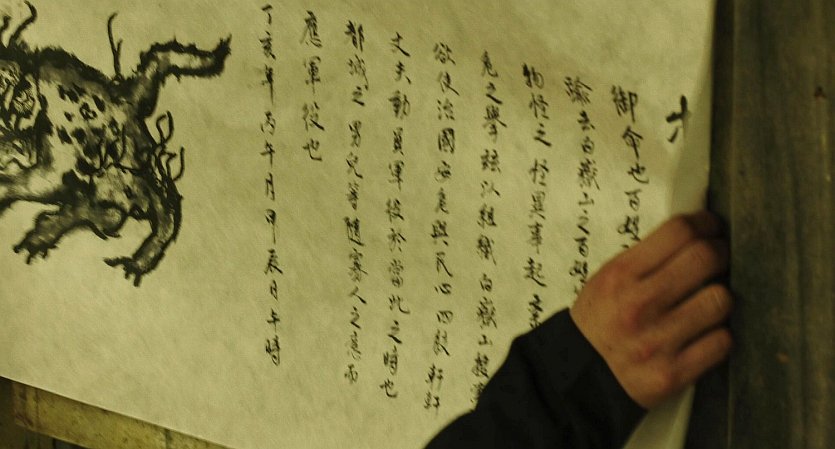 御命也百姓
諭去白嶽山之百姓
物怪之怪異事起
危之擧玆以組織白嶽山
欲使治國安危與民心四散軒軒
丈夫動員軍役於當此之時也
都城之男兒等隨寡人之意而
應軍役也
丁亥年丙午月甲辰日午時